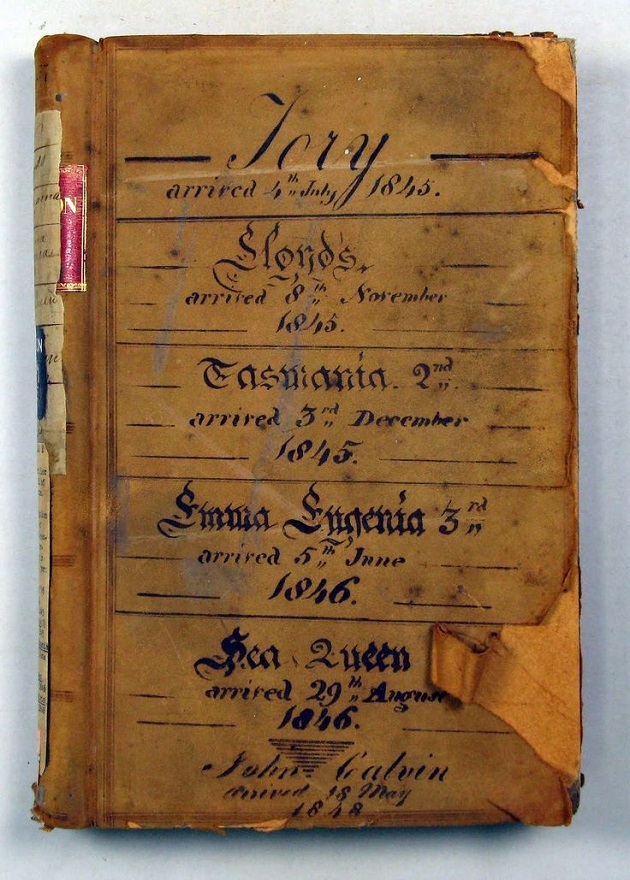 Tory
arrived 4th July 1845.
Lloyds.
arrived 8th November
1845.
Tasmania. 2nd.
arrived 3rd December
1845.
Emma Eugenia 3rd
arrived 5th June
1846.
Sea Queen
arrived 29th August
1846.
John Calvin
arrived 18 May
1848
N